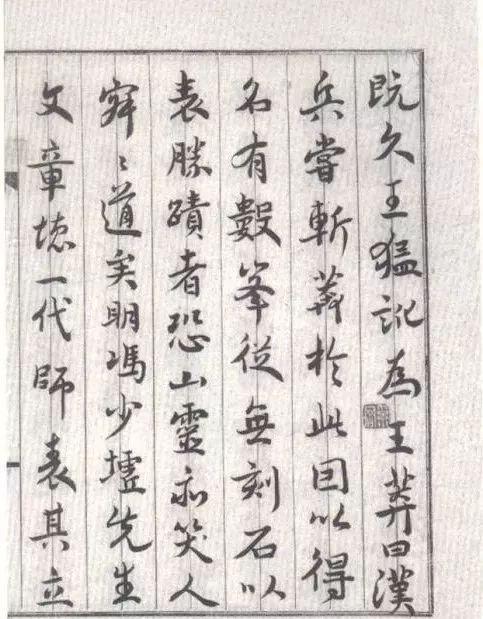 既久王猛訛為王莽曰漢
兵嘗斬莽於此因以得
名有數峯從無刻石以
表勝蹟者恐山靈亦笑人
道矣明馮少墟先生
文章一代師表其立